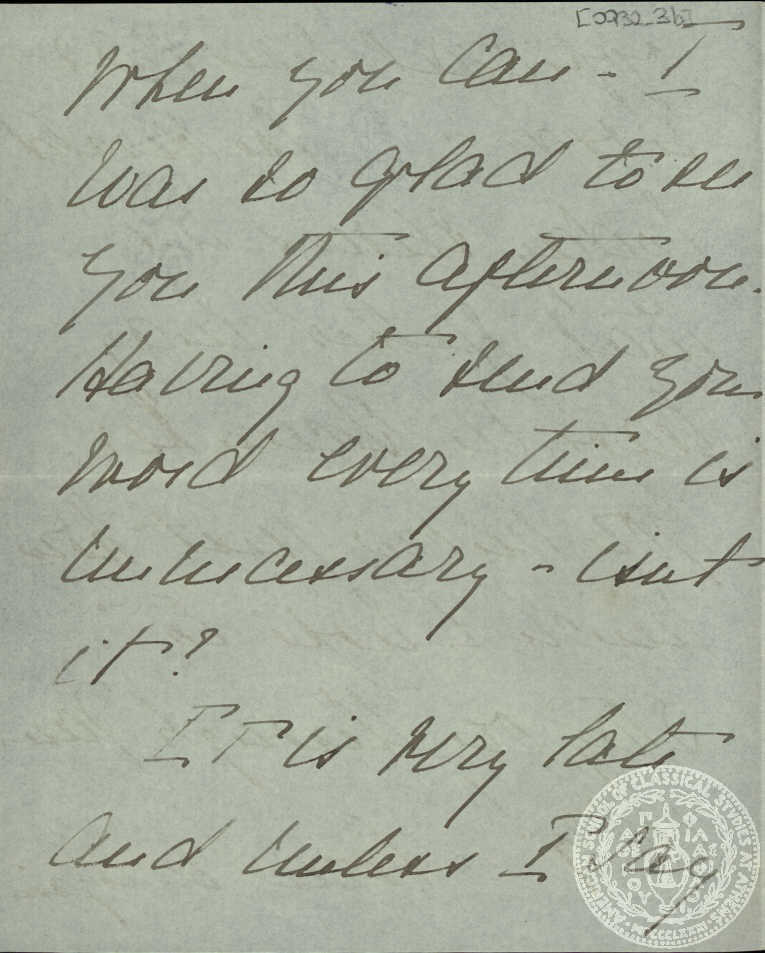 [0232_3b]
When you can - I
was so glad to see
you this afternoon.
Having to send you
word every time is
unnecessary - isnt
it?
It is very late
and unless I stay
AMERICAN SCHOOL OF CLASSICAL STUDIES AT ATHENS
MDCCCLXXXI